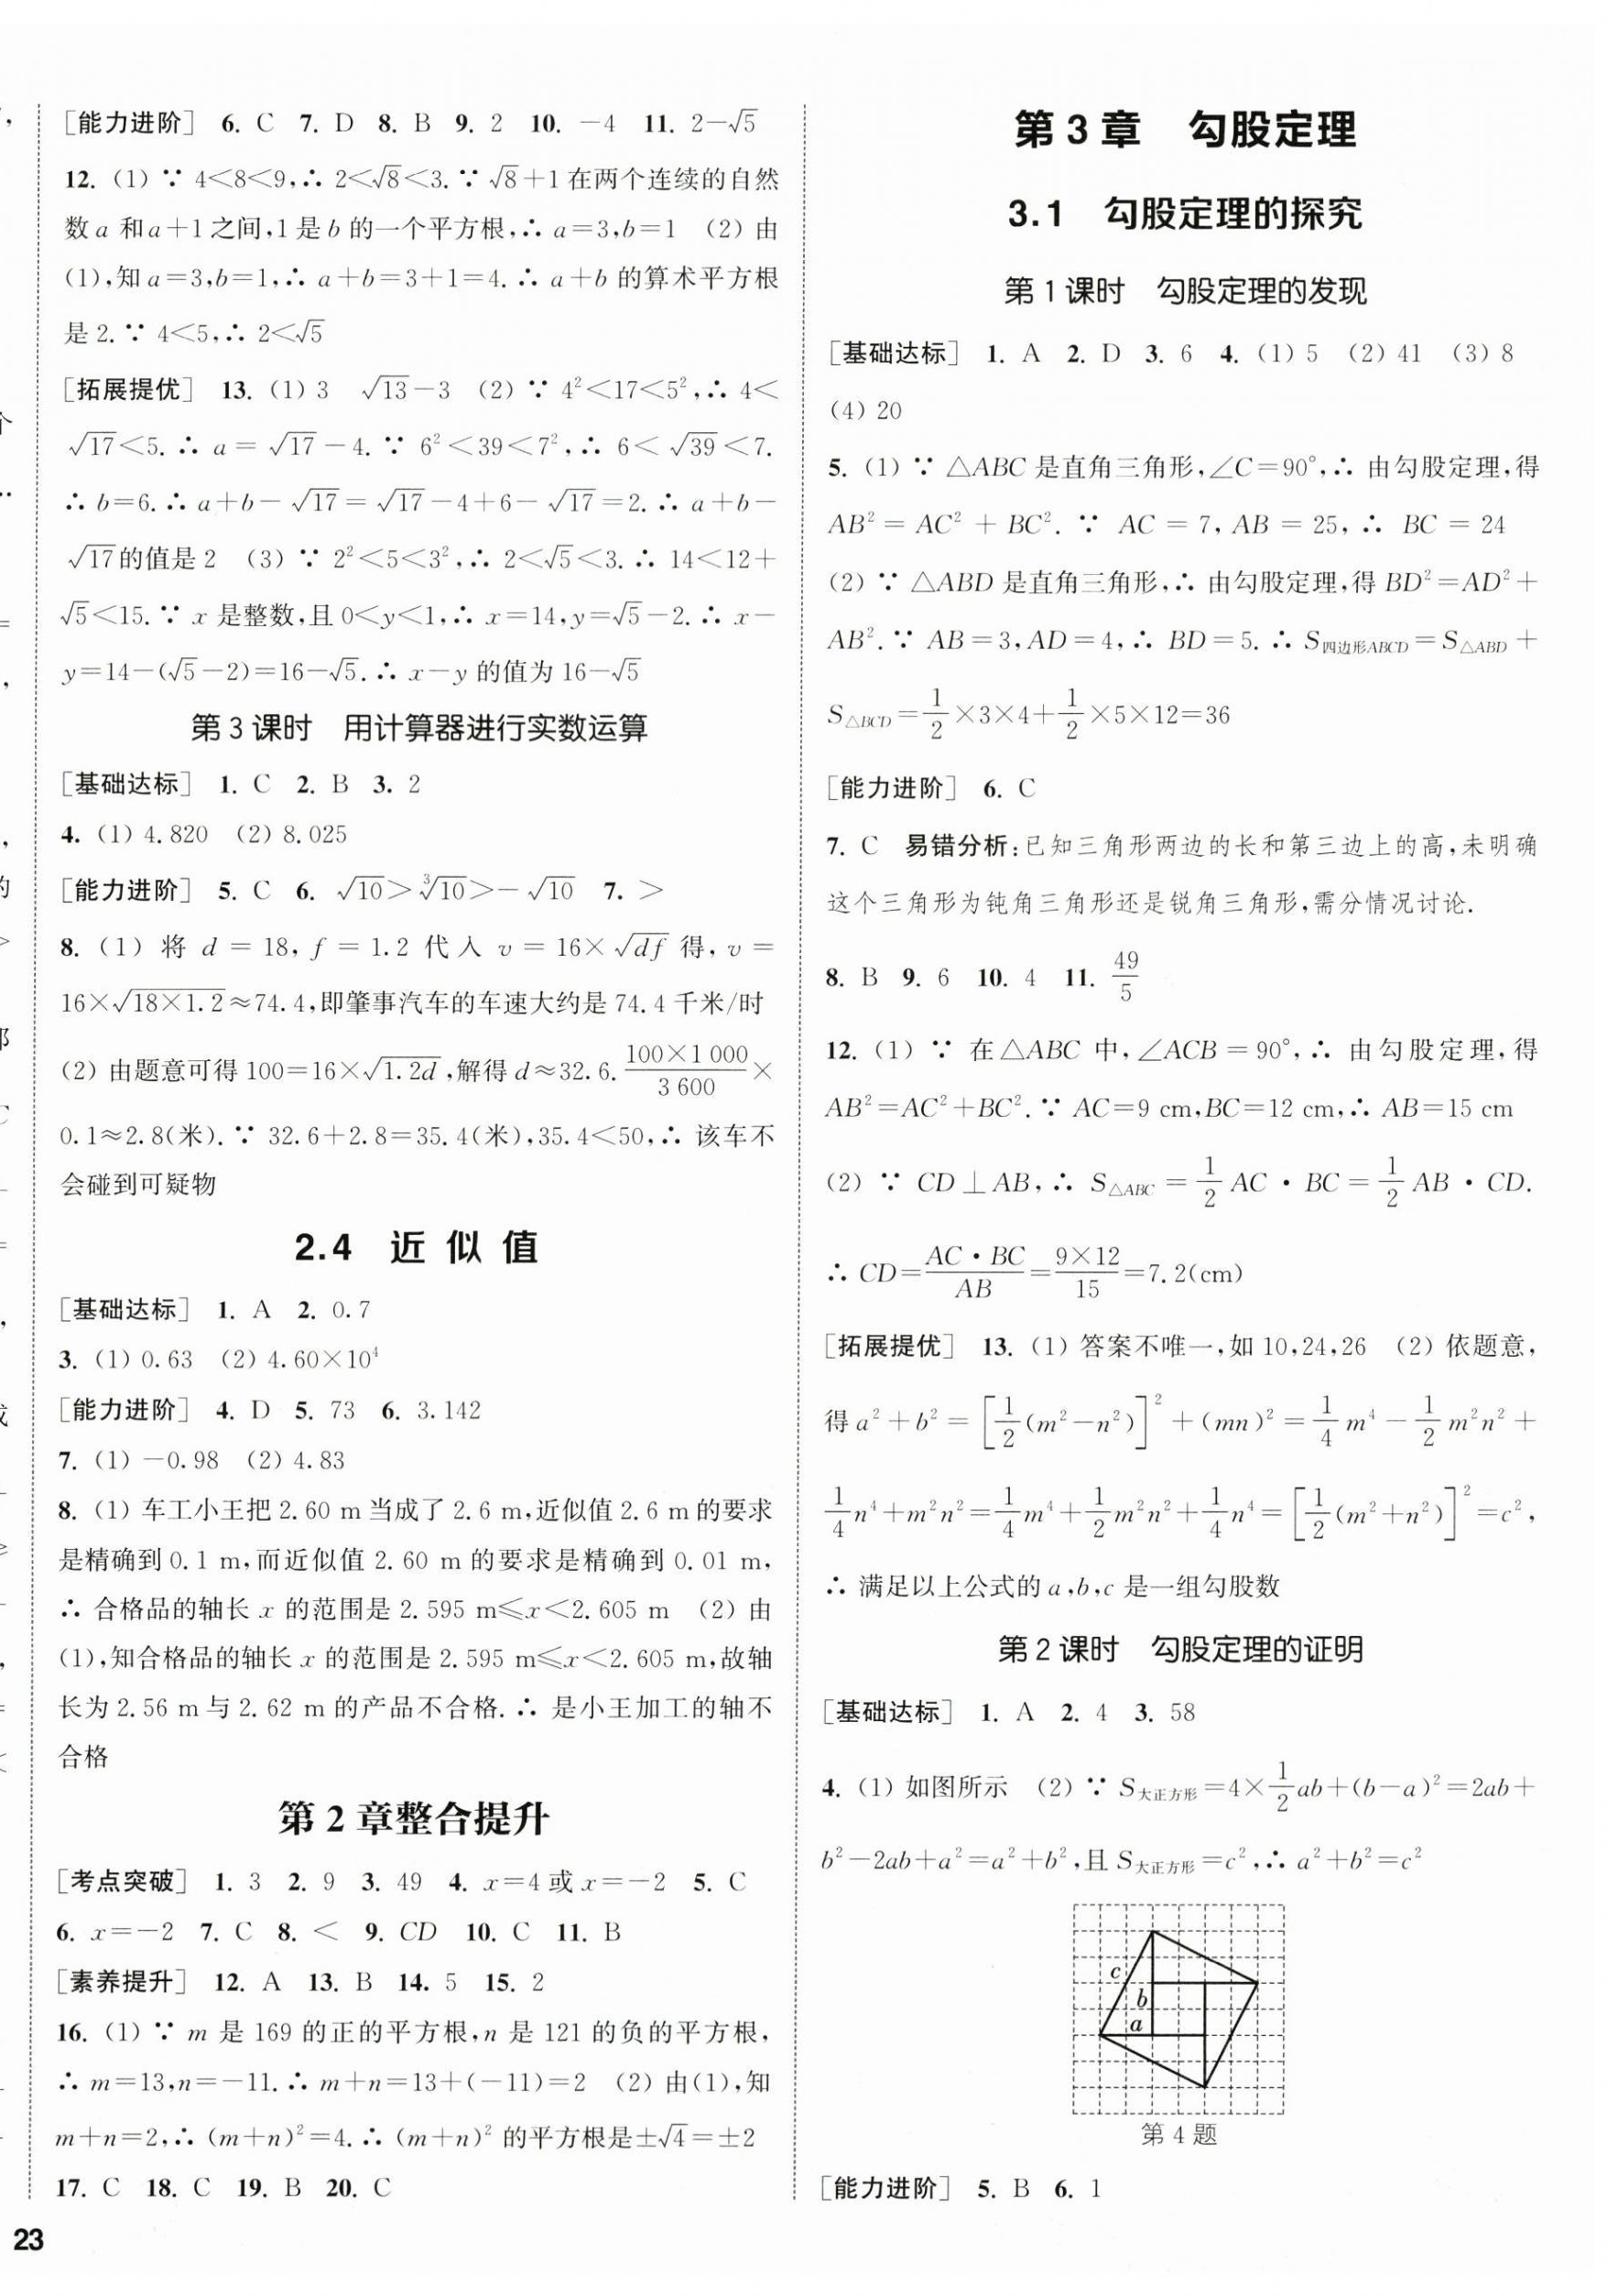 [能力进阶] 6. C 7. D 8. B 9. 2 10. －4 11. 2－√5
12. (1) ∵ 4＜8＜9,∴ 2＜√8＜3. ∵ √8＋1 在两个连续的自然
数 a 和 a＋1 之间,1 是 b 的一个平方根,∴ a＝3,b＝1 (2) 由
(1),知 a＝3,b＝1,∴ a＋b＝3＋1＝4. ∴ a＋b 的算术平方根
是 2. ∵ 4＜5,∴ 2＜√5
[拓展提优] 13. (1) 3 √13－3 (2) ∵ 4²＜17＜5²,∴ 4＜
√17＜5. ∴ a＝√17－4. ∵ 6²＜39＜7²,∴ 6＜√39＜7.
∴ b＝6. ∴ a＋b－√17＝√17－4＋6－√17＝2. ∴ a＋b－
√17的值是 2 (3) ∵ 2²＜5＜3²,∴ 2＜√5＜3. ∴ 14＜12＋
√5＜15. ∵ x 是整数,且 0＜y＜1,∴ x＝14,y＝√5－2. ∴ x－
y＝14－(√5－2)＝16－√5. ∴ x－y 的值为 16－√5
第 3 课时 用计算器进行实数运算
[基础达标] 1. C 2. B 3. 2
4. (1) 4.820 (2) 8.025
[能力进阶] 5. C 6. √10＞∛10＞－√10 7. ＞
8. (1) 将 d＝18, f＝1.2 代入 v＝16×√(df) 得, v＝
16×√(18×1.2)≈74.4,即肇事汽车的车速大约是 74.4 千米/时
(2) 由题意可得 100＝16×√(1.2d),解得 d≈32.6. (100×1 000)/(3 600)×
0.1≈2.8(米). ∵ 32.6＋2.8＝35.4(米),35.4＜50,∴ 该车不
会碰到可疑物
2.4 近似值
[基础达标] 1. A 2. 0.7
3. (1) 0.63 (2) 4.60×10⁴
[能力进阶] 4. D 5. 73 6. 3.142
7. (1) －0.98 (2) 4.83
8. (1) 车工小王把 2.60 m 当成了 2.6 m,近似值 2.6 m 的要求
是精确到 0.1 m,而近似值 2.60 m 的要求是精确到 0.01 m,
∴ 合格品的轴长 x 的范围是 2.595 m≤x＜2.605 m (2) 由
(1),知合格品的轴长 x 的范围是 2.595 m≤x＜2.605 m,故轴
长为 2.56 m 与 2.62 m 的产品不合格. ∴ 是小王加工的轴不
合格
第 2 章整合提升
[考点突破] 1. 3 2. 9 3. 49 4. x＝4 或 x＝－2 5. C
6. x＝－2 7. C 8. ＜ 9. CD 10. C 11. B
[素养提升] 12. A 13. B 14. 5 15. 2
16. (1) ∵ m 是 169 的正的平方根,n 是 121 的负的平方根,
∴ m＝13,n＝－11. ∴ m＋n＝13＋(－11)＝2 (2) 由(1),知
m＋n＝2,∴ (m＋n)²＝4. ∴ (m＋n)² 的平方根是±√4＝±2
17. C 18. C 19. B 20. C
23
第 3 章 勾股定理
3.1 勾股定理的探究
第 1 课时 勾股定理的发现
[基础达标] 1. A 2. D 3. 6 4. (1) 5 (2) 41 (3) 8
(4) 20
5. (1) ∵ △ABC 是直角三角形,∠C＝90°,∴ 由勾股定理,得
AB²＝AC²＋BC². ∵ AC＝7, AB＝25, ∴ BC＝24
(2) ∵ △ABD 是直角三角形,∴ 由勾股定理,得 BD²＝AD²＋
AB². ∵ AB＝3,AD＝4,∴ BD＝5. ∴ S四边形ABCD＝S△ABD＋
S△BCD＝1/2×3×4＋1/2×5×12＝36
[能力进阶] 6. C
7. C 易错分析:已知三角形两边的长和第三边上的高,未明确
这个三角形为钝角三角形还是锐角三角形,需分情况讨论.
8. B 9. 6 10. 4 11. 49/5
12. (1) ∵ 在△ABC 中,∠ACB＝90°,∴ 由勾股定理,得
AB²＝AC²＋BC². ∵ AC＝9 cm,BC＝12 cm,∴ AB＝15 cm
(2) ∵ CD⊥AB,∴ S△ABC＝1/2 AC·BC＝1/2 AB·CD.
∴ CD＝(AC·BC)/AB＝(9×12)/15＝7.2(cm)
[拓展提优] 13. (1) 答案不唯一,如 10,24,26 (2) 依题意,
得 a²＋b²＝[1/2(m²－n²)]²＋(mn)²＝1/4 m⁴－1/2 m²n²＋
1/4 n⁴＋m²n²＝1/4 m⁴＋1/2 m²n²＋1/4 n⁴＝[1/2(m²＋n²)]²＝c²,
∴ 满足以上公式的 a,b,c 是一组勾股数
第 2 课时 勾股定理的证明
[基础达标] 1. A 2. 4 3. 58
4. (1) 如图所示 (2) ∵ S大正方形＝4×1/2 ab＋(b－a)²＝2ab＋
b²－2ab＋a²＝a²＋b²,且 S大正方形＝c²,∴ a²＋b²＝c²
c
b
a
第 4 题
[能力进阶] 5. B 6. 1